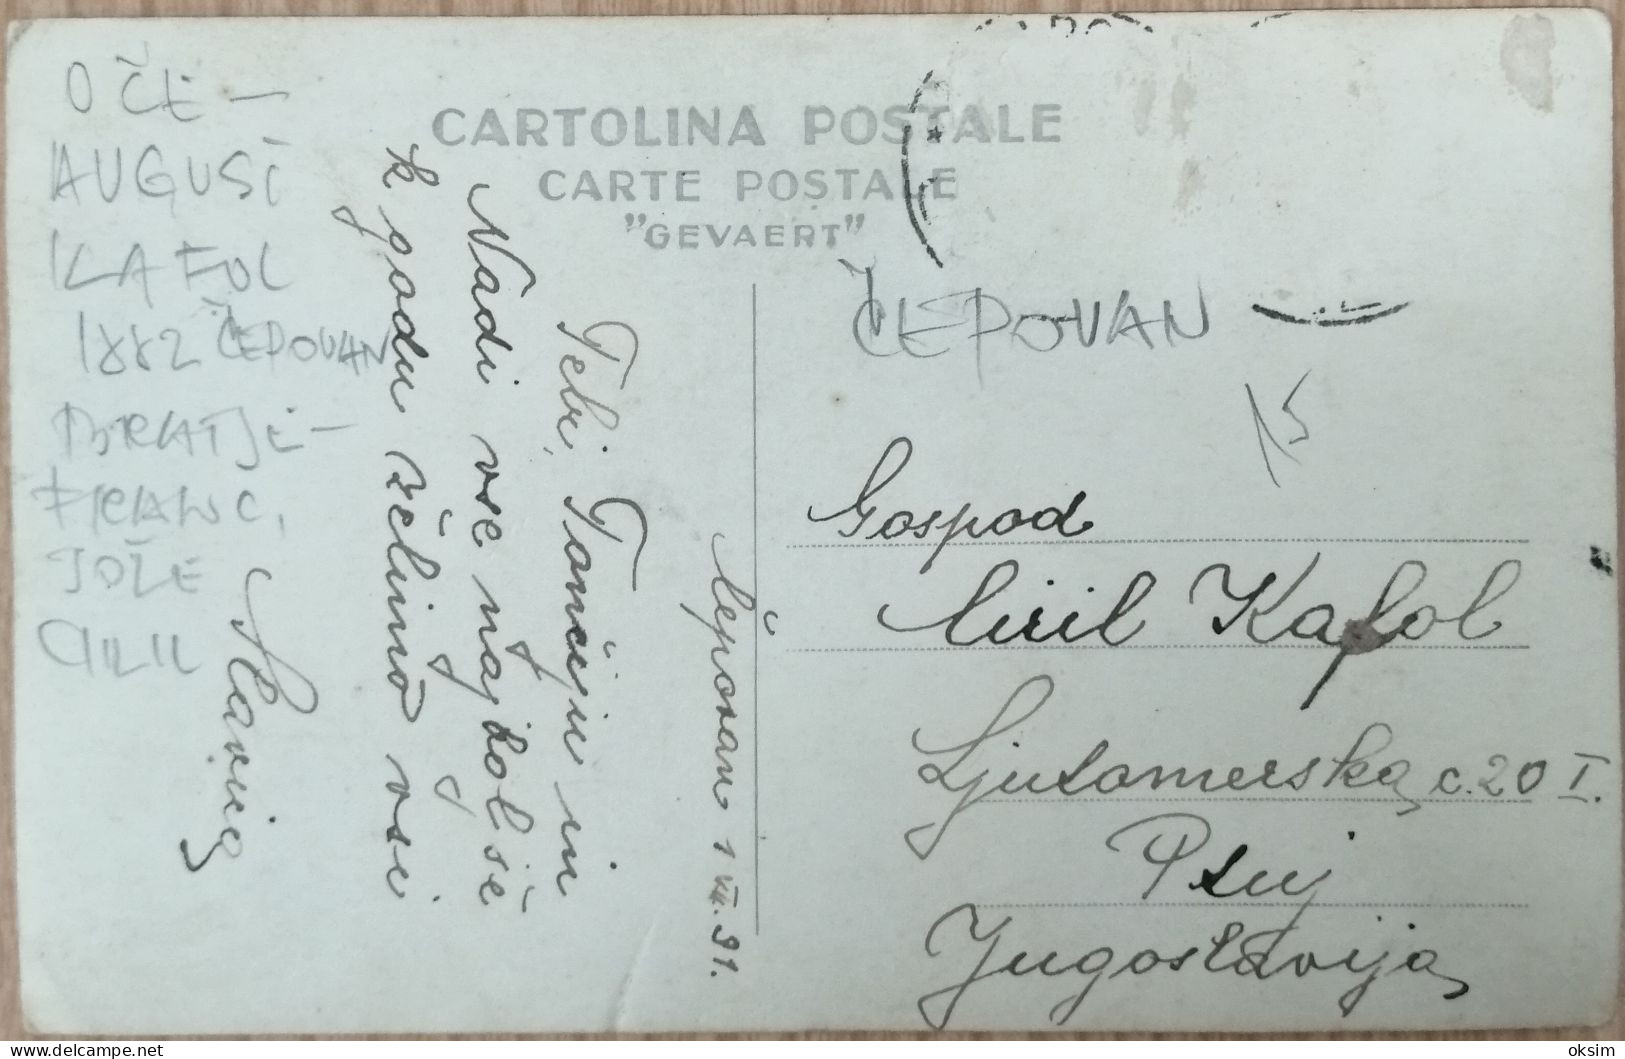 CARTOLINA POSTALE
CARTE POSTALE
"GEVAERT"
OČE –
AUGUST
KAFOL
1882 ČEPOVAN
BRATJE –
FRANC,
JOŽE
CIRIL
ČEPOVAN
15
Čepovan 1 VII. 31.
Tebi, Tončiju in
Nadi vse najbolše
k godu želimo vsi
Slavica
Gospod
Ciril Kafol
Ljutomerska c. 20 I.
Ptuj
Jugoslavija
oksim
delcampe.net